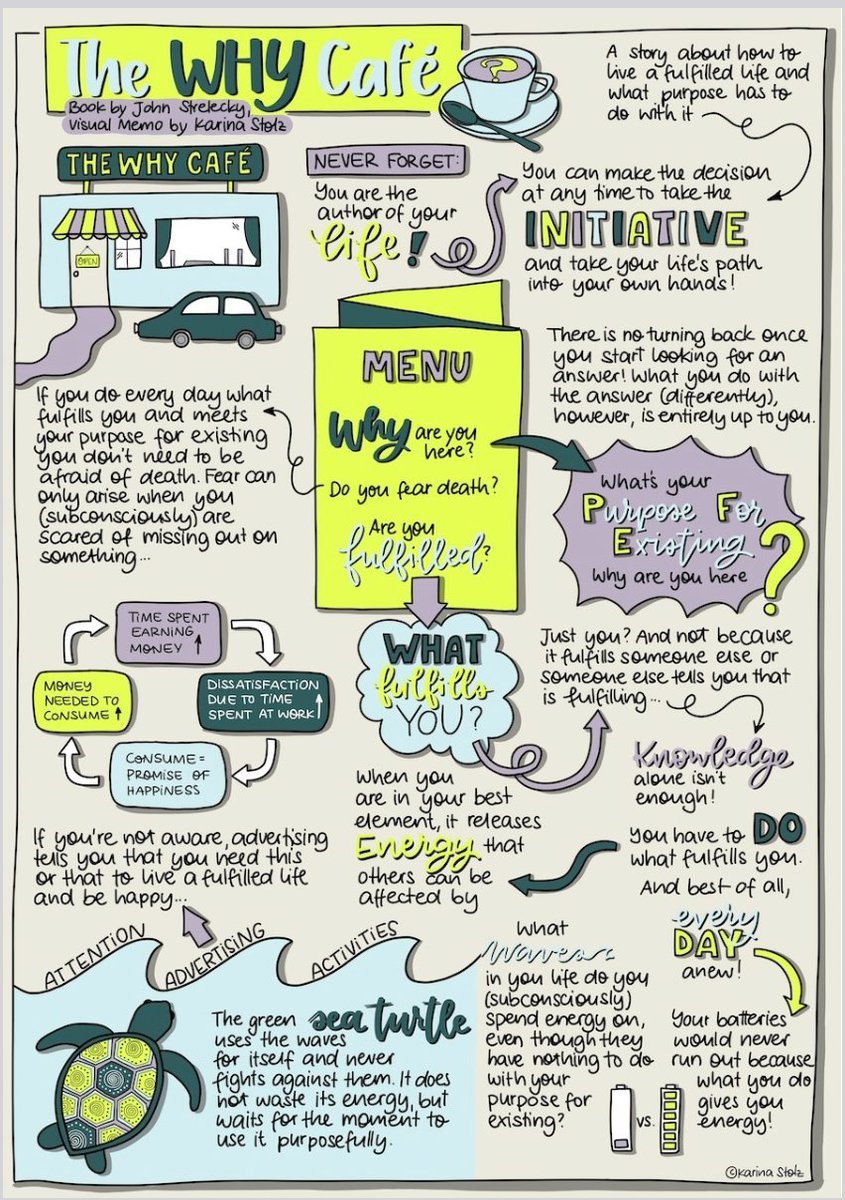 The WHY Café
Book by John Strelecky,
Visual Memo by Karina Stolz
A story about how to
live a fulfilled life and
what purpose has to
do with it
THE WHY CAFÉ
OPEN
NEVER FORGET:
You are the
author of your
life!
You can make the decision
at any time to take the
INITIATIVE
and take your life's path
into your own hands!
MENU
Why are you
here?
Do you fear death?
Are you
fulfilled?
There is no turning back once
you start looking for an
answer! What you do with
the answer (differently),
however, is entirely up to you.
If you do every day what
fulfills you and meets
your purpose for existing
you don't need to be
afraid of death. Fear can
only arise when you
(subconsciously) are
scared of missing out on
something...
What's your
Purpose For
Existing
Why are you here
?
TIME SPENT
EARNING
MONEY ↑
DISSATISFACTION
DUE TO TIME
SPENT AT WORK ↑
CONSUME =
PROMISE OF
HAPPINESS
MONEY
NEEDED TO
CONSUME ↑
WHAT
fulfills
YOU?
Just you? And not because
it fulfills someone else or
someone else tells you that
is fulfilling...
Knowledge
alone isn't
enough!
You have to DO
what fulfills you.
And best of all,
every
DAY
anew!
When you
are in your best
element, it releases
Energy that
others can be
affected by
If you're not aware, advertising
tells you that you need this
or that to live a fulfilled life
and be happy...
ATTENTION
ADVERTISING
ACTIVITIES
The green sea turtle
uses the waves
for itself and never
fights against them. It does
not waste its energy, but
waits for the moment to
use it purposefully.
What
waves
in you life do you
(subconsciously)
spend energy on,
even though they
have nothing to do
with your
purpose for
existing?
Your batteries
would never
run out because
what you do
gives you
energy!
vs.
©Karina Stolz